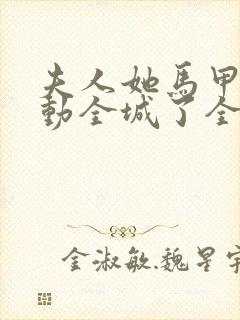 夫人她馬甲
動全城了全
金淑敏.魏星宇